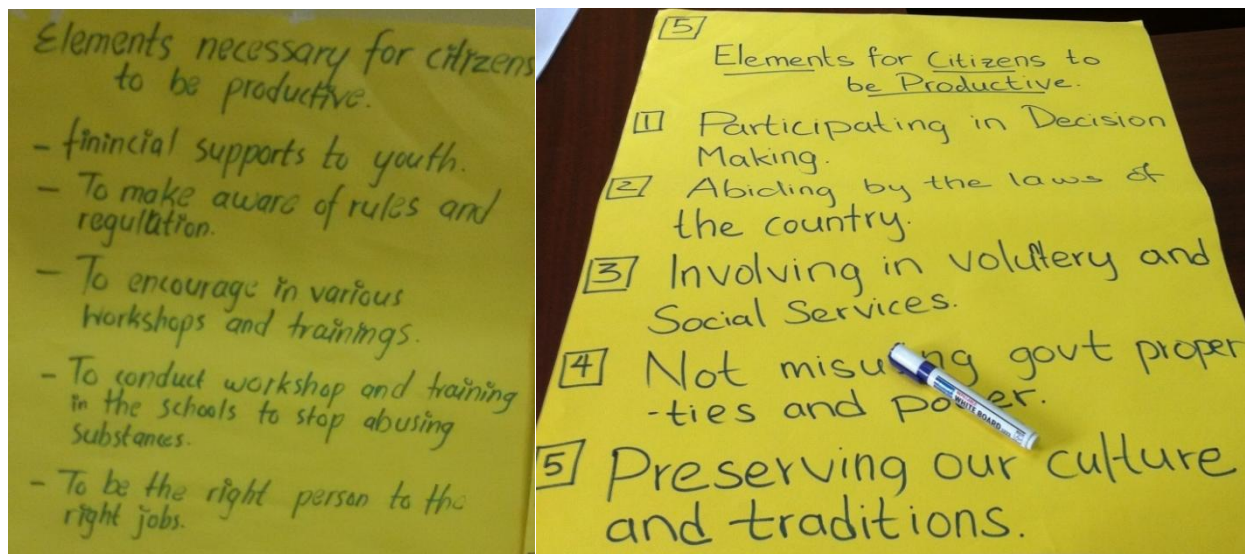 Elements necessary for citizens
to be productive.
- finincial supports to youth.
- To make aware of rules and
regulation.
- To encourage in various
workshops and trainings.
- To conduct workshop and training
in the schools to stop abusing
substances.
- To be the right person to the
right jobs.
5
Elements for Citizens to
be Productive.
1 Participating in Decision
Making.
2 Abiding by the laws of
the country.
3 Involving in volutery and
Social Services.
4 Not misuing govt proper
-ties and power.
WHITE BOARD
5 Preserving our culture
and traditions.